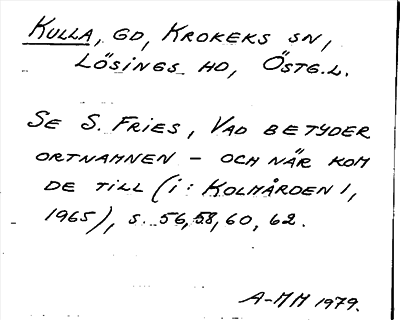 KULLA, GD, KROKEKS SN,
LÖSINGS HD, ÖSTG.L.
SE S. FRIES, VAD BETYDER
ORTNAMNEN – OCH NÄR KOM
DE TILL (i: KOLMÅRDEN 1,
1965), S. 56, 58, 60, 62.
A-MM 1979.